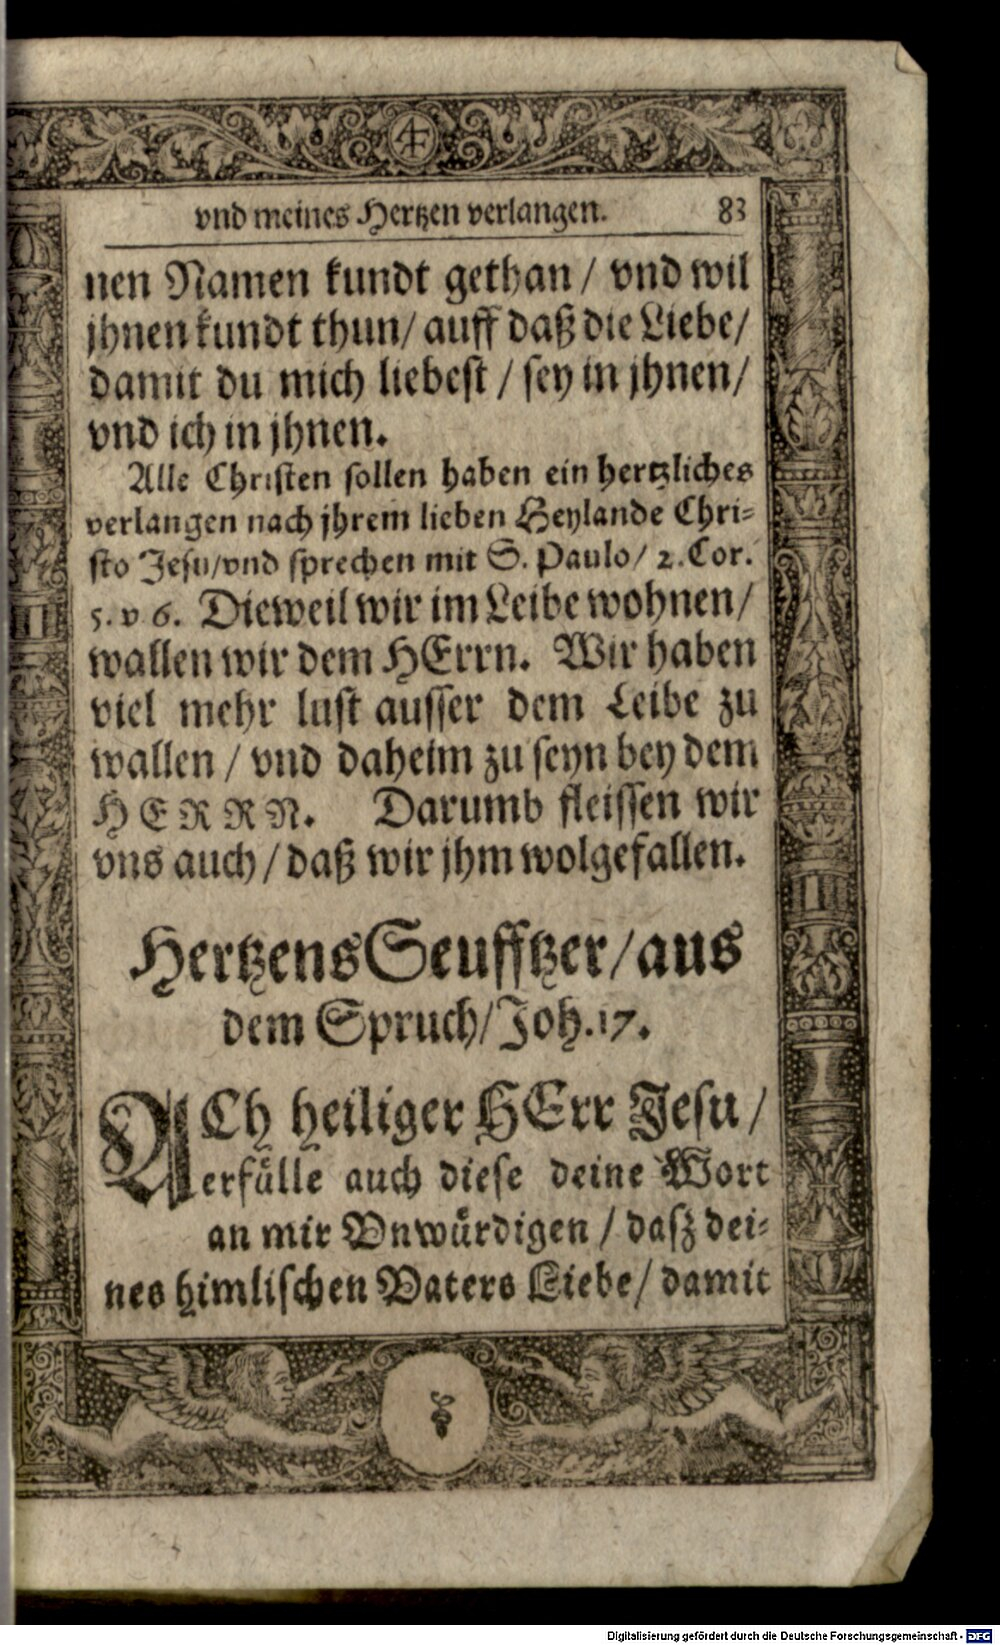 vnd meines Hertzen verlangen. 83
nen Namen kundt gethan / vnd wil
jhnen kundt thun/ auff daß die Liebe/
damit du mich liebest / sey in jhnen/
vnd ich in jhnen.
Alle Christen sollen haben ein hertzliches
verlangen nach jhrem lieben Heylande Chri-
sto Jesu/vnd sprechen mit S. Paulo/ 2. Cor.
5. v 6. Dieweil wir im Leibe wohnen/
wallen wir dem HErrn. Wir haben
viel mehr lust ausser dem Leibe zu
wallen / vnd daheim zu seyn bey dem
HERRN. Darumb fleissen wir
vns auch / daß wir jhm wolgefallen.
Hertzens Seufftzer/ aus
dem Spruch/ Joh. 17.
ACh heiliger HErr Jesu /
erfülle auch diese deine Wort
an mir Vnwürdigen / dasz dei-
nes himlischen Vaters Liebe/ damit
Digitalisierung gefördert durch die Deutsche Forschungsgemeinschaft - DFG